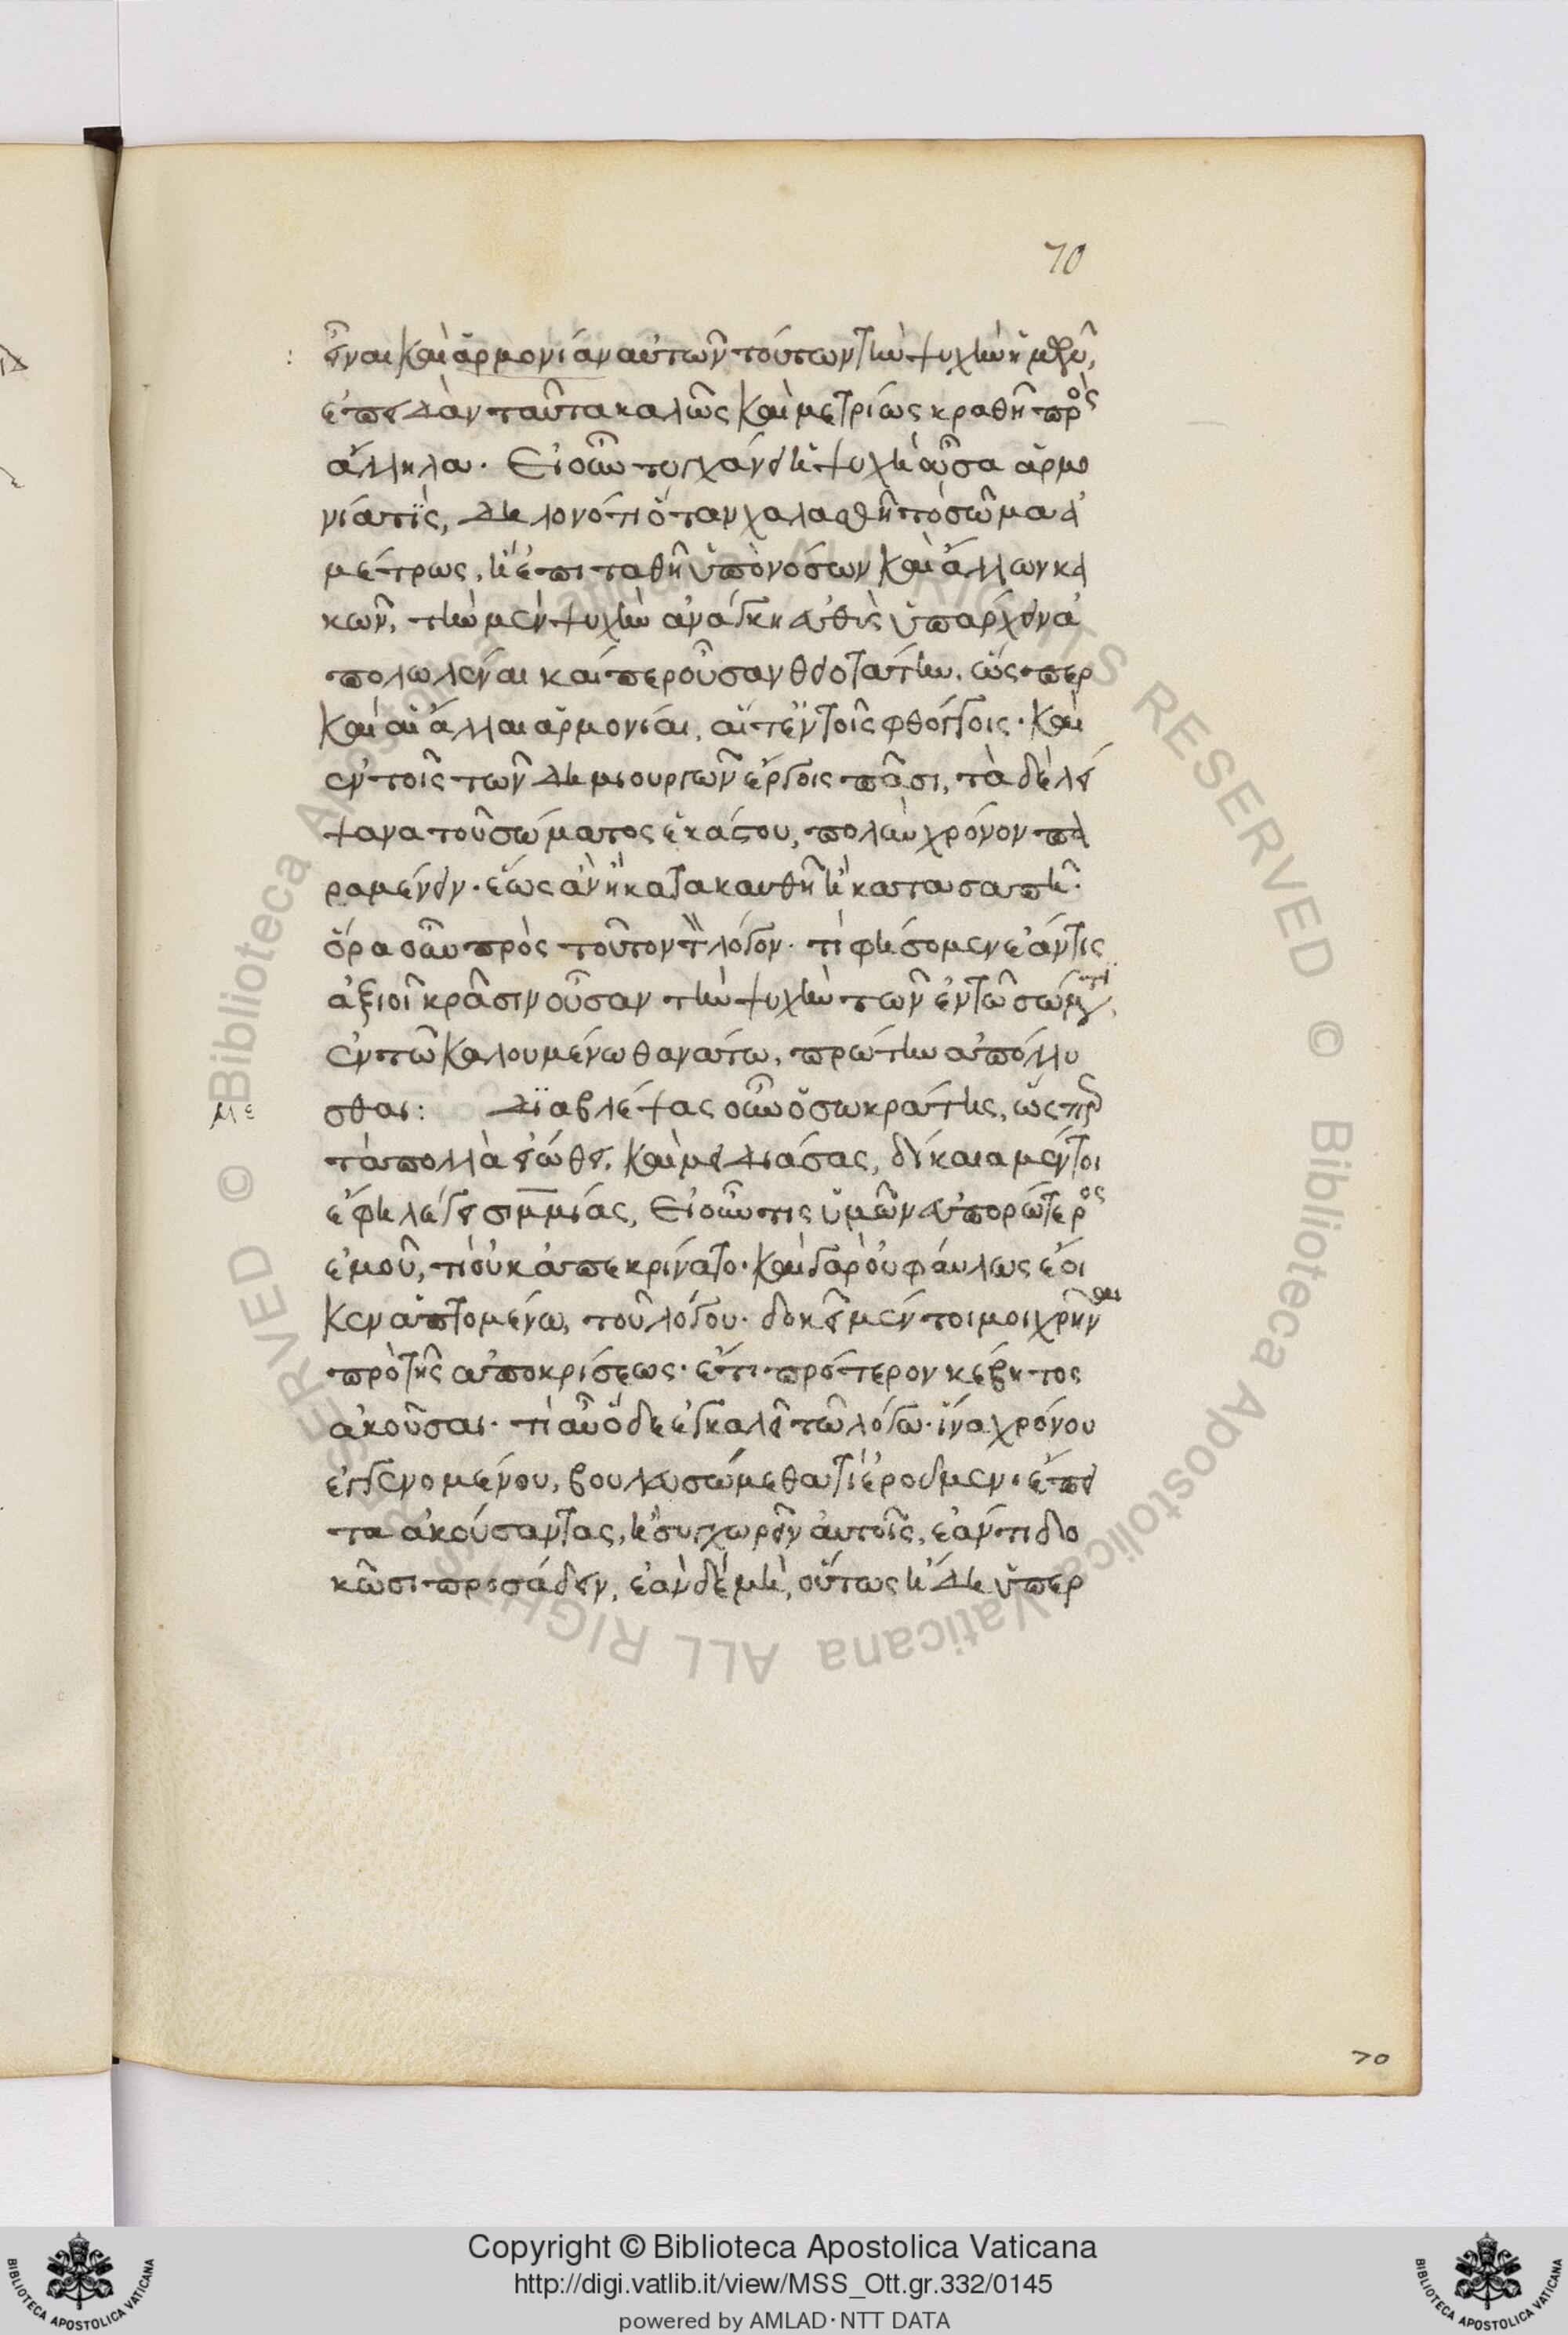 70
εἶναι καὶ ἁρμονίαν αὐτῶν τούτων τὴν ψυχὴν ἡμῶν,
ἐπειδὰν ταῦτα καλῶς καὶ μετρίως κραθῆ πρὸς
ἄλληλα. Εἰ οὖν τυγχάνει ἡ ψυχὴ οὖσα ἁρμο
νία τίς, δηλονότι ὅταν χαλασθῆ τὸ σῶμα ἀ
μέτρως, ἢ ἐπιταθῆ ὑπὸ νόσων καὶ ἄλλων κα
κῶν, τὴν μὲν ψυχὴν ἀνάγκη εὐθὺς ὑπάρχειν ἀ
πολωλέναι καίπερ οὖσαν θειοτάτην, ὥσπερ
καὶ αἱ ἄλλαι ἁρμονίαι, αἵ τ' ἐν τοῖς φθόγγοις. καὶ
ἐν τοῖς τῶν δημιουργῶν ἔργοις πᾶσι, τὰ δὲ λεί
ψανα τοῦ σώματος ἑκάστου, πολὺν χρόνον πα
ραμένειν. ἕως ἂν ἢ κατακαυθῆ ἢ κατασαπῆ.
ὅρα οὖν πρὸς τοῦτον τὸν λόγον. τί φήσομεν ἐάν τις
ἀξιοῖ κρᾶσιν οὖσαν τὴν ψυχὴν τῶν ἐν τῶ σώματι,
ἐν τῶ καλουμένω θανάτω, πρώτην ἀπόλλυ
με σθαι: Διαβλέψας οὖν ὁ σωκράτης, ὥσπερ
τὰ πολλὰ εἰώθει, καὶ μειδιάσας, δίκαια μέντοι
ἔφη λέγει σιμμίας, Εἰ οὖν τις ὑμῶν εὐπορώτερος
ἐμοῦ, τί οὐκ ἀπεκρίνατο. καὶ γὰρ οὐ φαύλως ἔοι
κεν ἁπτομένω, τοῦ λόγου. δοκεῖ μέντοι μοι χρῆναι
πρὸ τῆς ἀποκρίσεως. ἔτι πρότερον κέβητος
ἀκοῦσαι. τί αὖ ὅδε ἐγκαλεῖ τῶ λόγω. ἵνα χρόνου
ἐγγενομένου, βουλευσώμεθα τί ἐροῦμεν. ἔπει
τα ἀκούσαντας, ἢ συγχωρεῖν αὐτοῖς, ἐάν τι δο
κῶσι προσάδειν, ἐὰν δὲ μὴ, οὕτως ἤδη ὑπὲρ
70
Copyright © Biblioteca Apostolica Vaticana
http://digi.vatlib.it/view/MSS_Ott.gr.332/0145
powered by AMLAD · NTT DATA
© Biblioteca Apostolica Vaticana ALL RIGHTS RESERVED
© Biblioteca Apostolica Vaticana ALL RIGHTS RESERVED
BIBLIOTECA APOSTOLICA VATICANA
BIBLIOTECA APOSTOLICA VATICANA